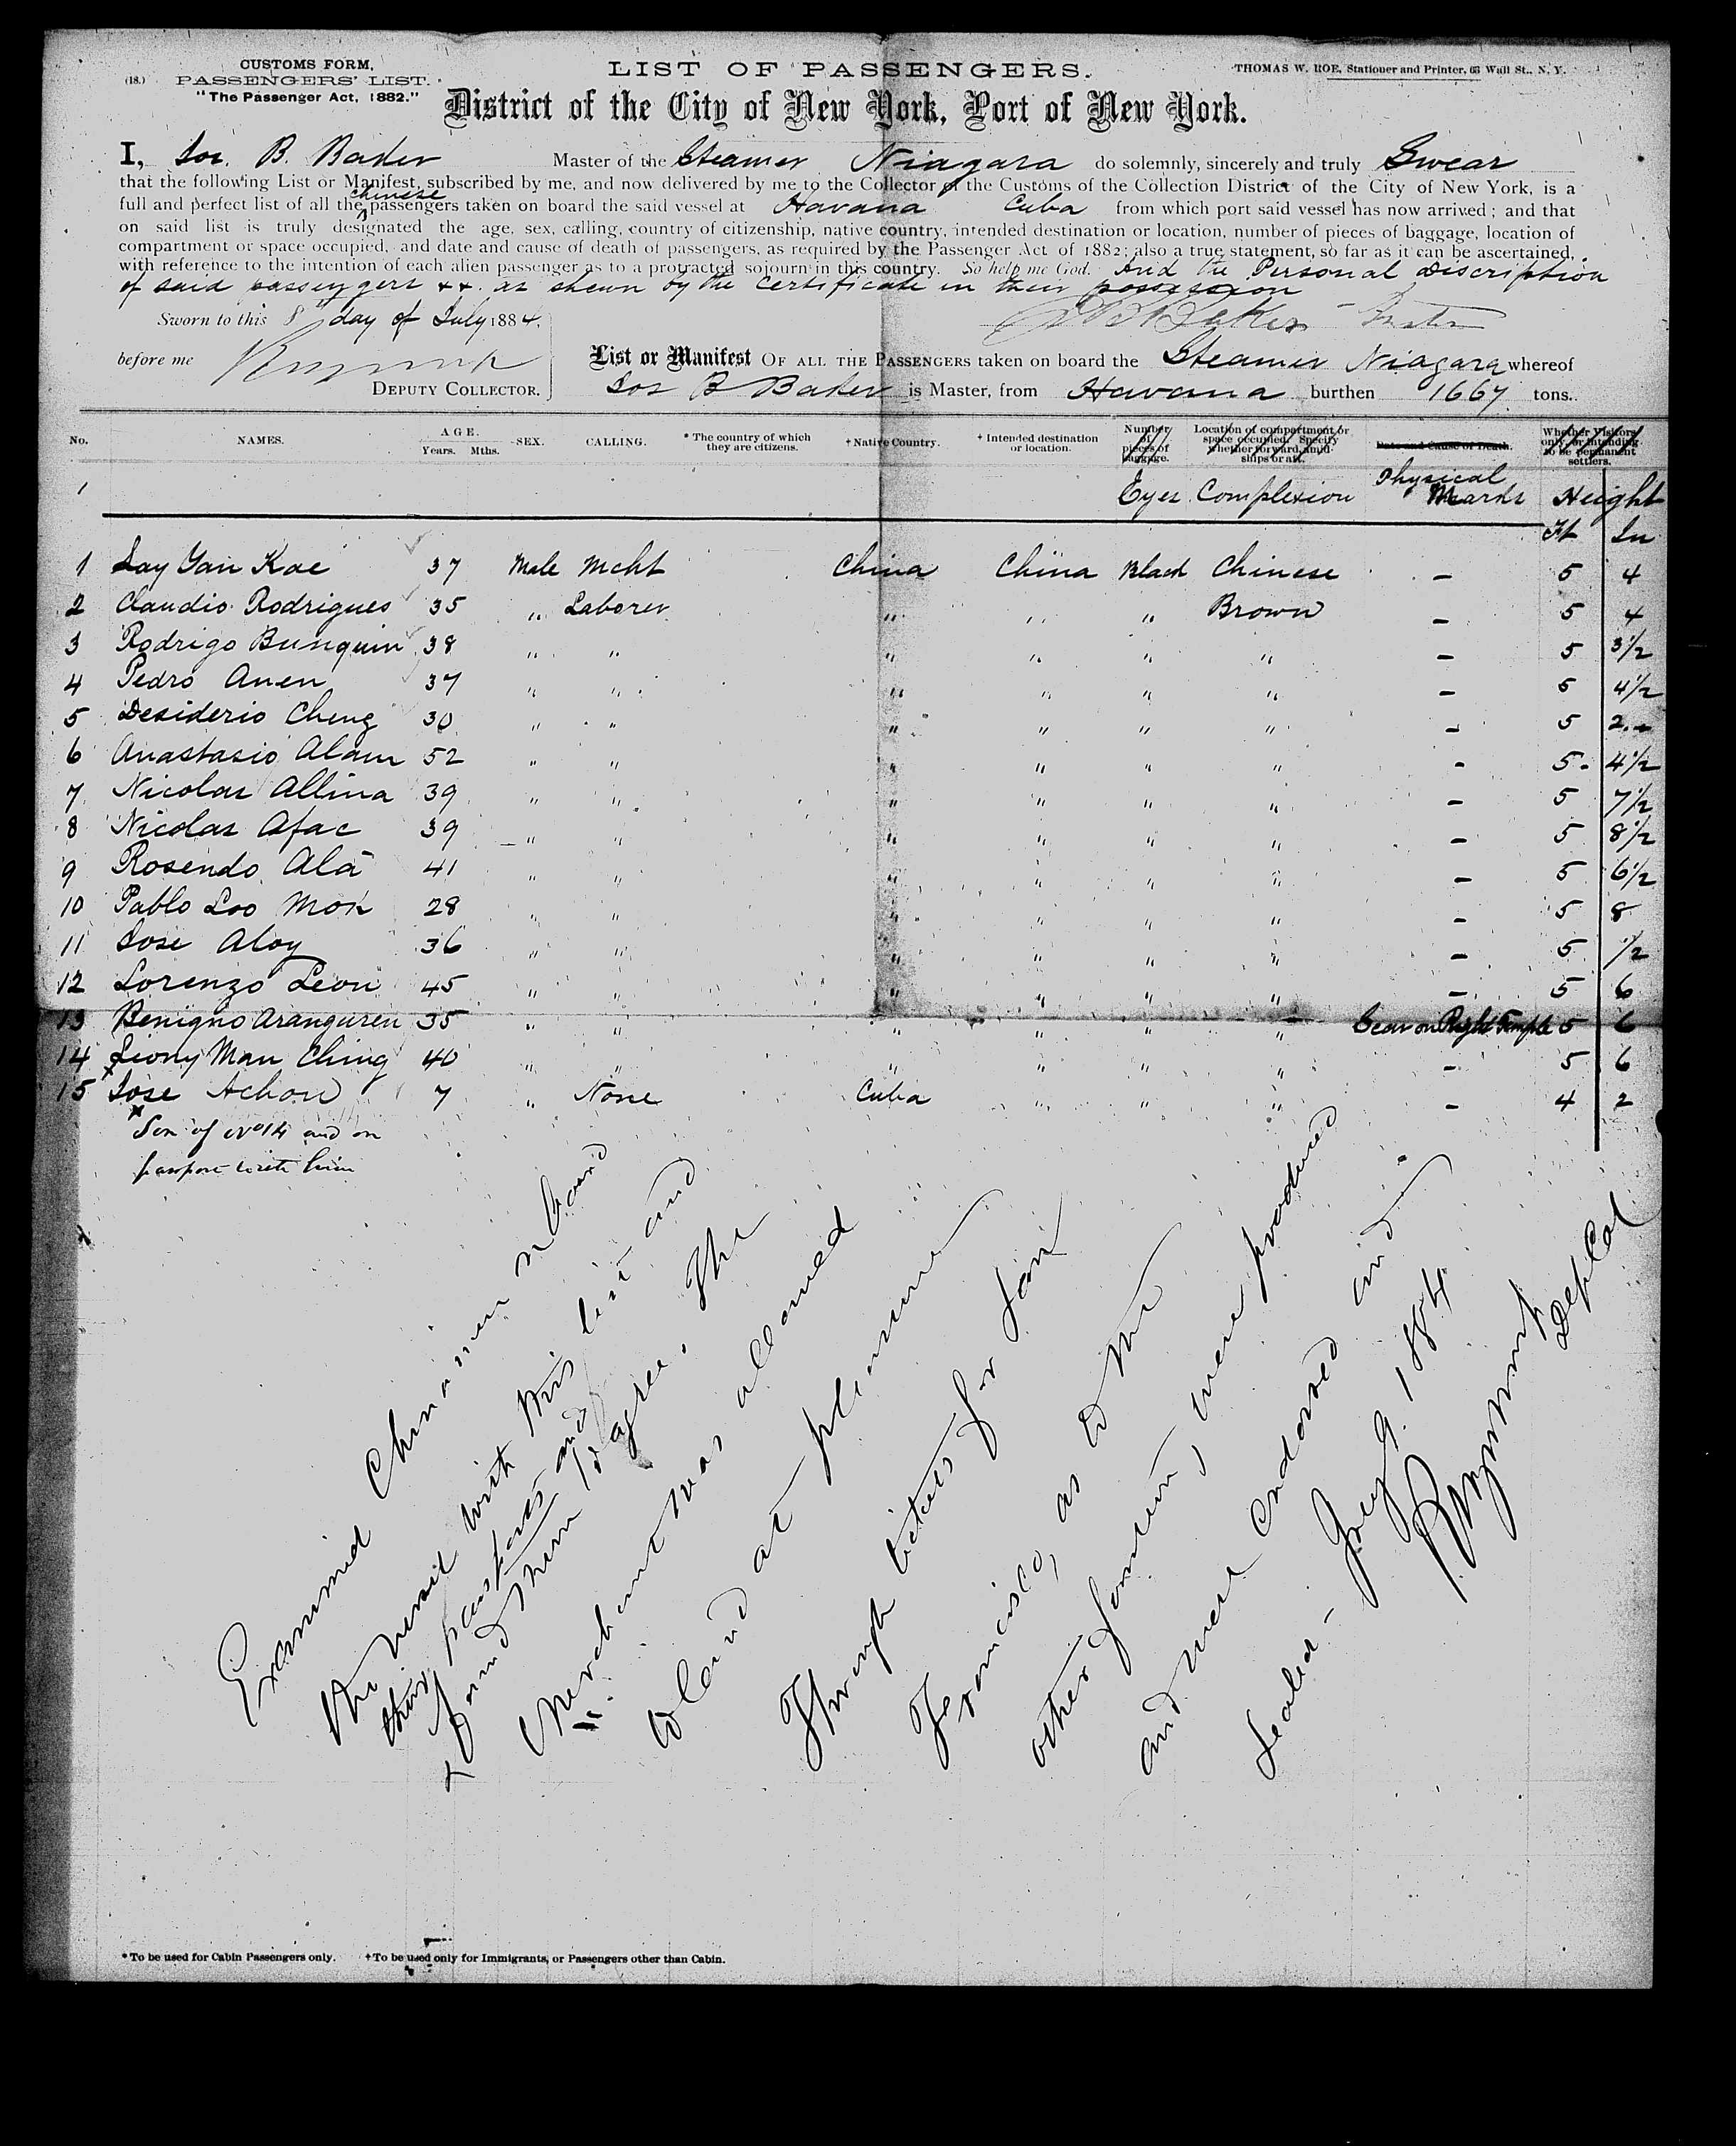 CUSTOMS FORM,
(18.) PASSENGERS' LIST.
"The Passenger Act, 1882."
LIST OF PASSENGERS.
THOMAS W. ROE, Stationer and Printer, 63 Wall St., N. Y.
District of the City of New York, Port of New York.
I, Jos. B. Baker Master of the Steamer Niagara do solemnly, sincerely and truly Swear
that the following List or Manifest, subscribed by me, and now delivered by me to the Collector of the Customs of the Collection District of the City of New York, is a
full and perfect list of all the Chinese passengers taken on board the said vessel at Havana Cuba from which port said vessel has now arrived; and that
on said list is truly designated the age, sex, calling, country of citizenship, native country, intended destination or location, number of pieces of baggage, location of
compartment or space occupied, and date and cause of death of passengers, as required by the Passenger Act of 1882; also a true statement, so far as it can be ascertained,
with reference to the intention of each alien passenger as to a protracted sojourn in this country. So help me God. And the Personal discription
of said passengers &&. as shewn by the certificate in their possession
Sworn to this 8 day of July 1884.
J B Baker
before me
DEPUTY COLLECTOR.
List or Manifest OF ALL THE PASSENGERS taken on board the Steamer Niagara whereof
Jos B Baker is Master, from Havana burthen 1667 tons.
No. NAMES. AGE. Years. Mths. SEX. CALLING. * The country of which they are citizens. † Native Country. † Intended destination or location. Number of pieces of baggage. Location of compartment or space occupied. Specify whether forward, amidships or aft. Date and Cause of Death. Whether Visitors only, or intending to be permanent settlers.
1 Eyes Complexion Physical Marks Height
Ft In
1 Lay Yan Kae 37 Male Mcht China China Black Chinese - 5 4
2 Claudio Rodrigues 35 " Laborer " " " Brown - 5 4
3 Rodrigo Bunquin 38 " " " " " " - 5 3 1/2
4 Pedro Anen 37 " " " " " " - 5 4 1/2
5 Desiderio Cheng 30 " " " " " " - 5 2.-
6 Anastasio Alam 52 " " " " " " - 5 4 1/2
7 Nicolas Allina 39 " " " " " " - 5 7 1/2
8 Nicolas Afac 39 " " " " " " - 5 8 1/2
9 Rosendo Alá 41 " " " " " " - 5 6 1/2
10 Pablo Loo Mok 28 " " " " " " - 5 8
11 Jose Aloy 36 " " " " " " - 5 1/2
12 Lorenzo Leon 45 " " " " " " - 5 6
13 Benigno Aranguren 35 " " " " " " Scar on Right Temple 5 6
14 Siony Man Ching 40 " " " " " " - 5 6
15 Jose Achon 7 " None Cuba " " " - 4 2
* Son of No 14 and on
passport with him
Examined Chinamen on board
this vessel with this list and
their passports and
found them to agree. The
Merchant was allowed
to land at pleasure
Through tickets for San
Francisco, as to the
other fourteen, were produced
and were endorsed and
sealed - July 9. 1884
Dep Col
* To be used for Cabin Passengers only. † To be used only for Immigrants, or Passengers other than Cabin.